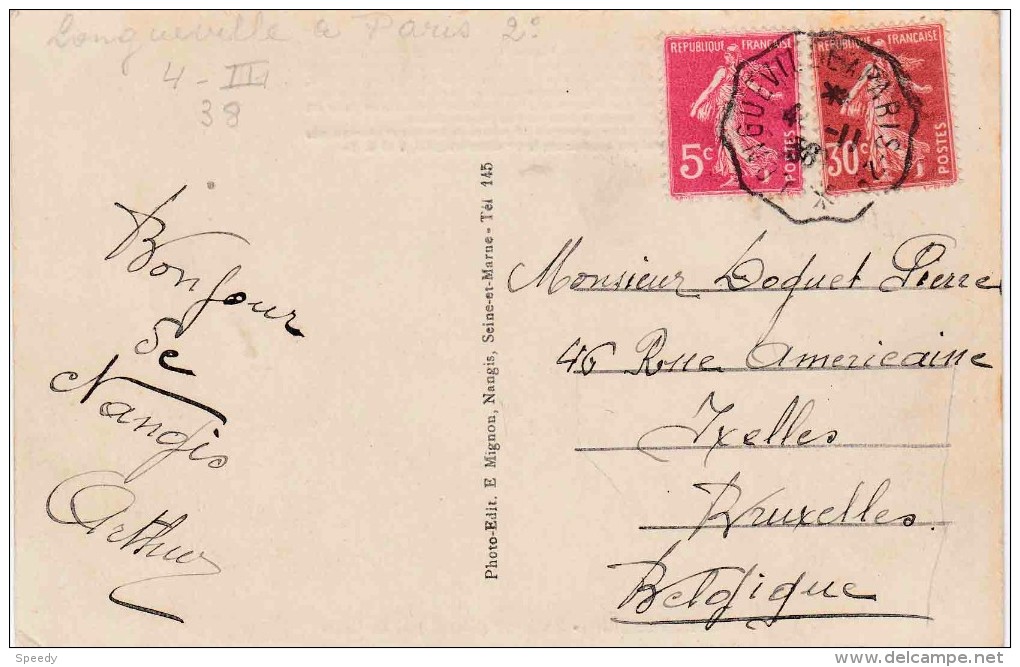 Longueville a Paris 2°
4-III
38
REPUBLIQUE FRANÇAISE
5c
POSTES
REPUBLIQUE FRANÇAISE
30c
POSTES
LONGUEVILLE A PARIS 2°
38
Bonjour
de
Nangis
Arthur
Photo-Edit. E Mignon, Nangis, Seine-et-Marne - Tél 145
Monsieur Doquet Pierre
46 Rue Americaine
Ixelles
Bruxelles.
Belgique
Speedy